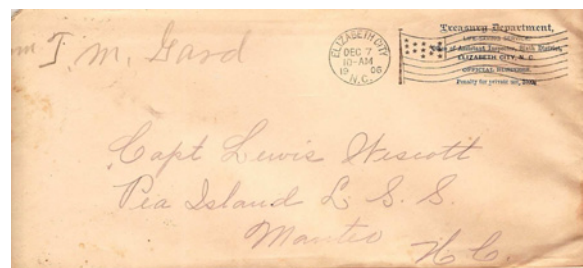 Treasury Department,
LIFE-SAVING SERVICE,
Office of Assistant Inspector, Sixth District,
ELIZABETH CITY, N. C.
OFFICIAL BUSINESS.
Penalty for private use, $300.
ELIZABETH CITY
DEC 7
10-AM
19 06
N.C.
T. M. Gard
Capt Lewis Wescott
Pea Island L. S. S.
Manteo
N C.